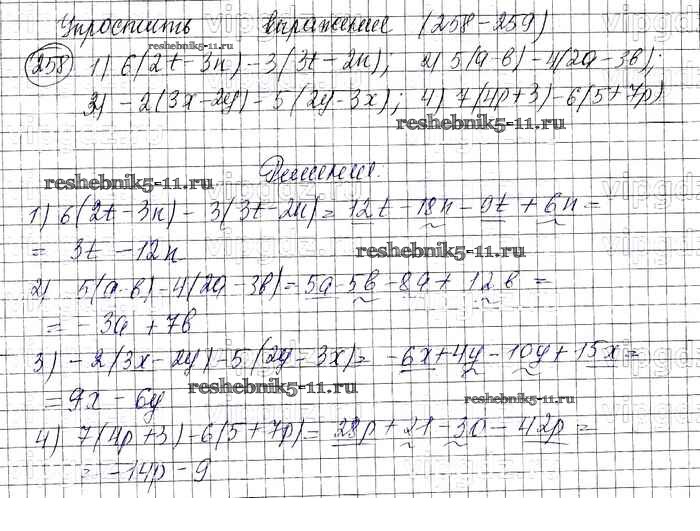 Упростить выражение (258-259)
reshebnik5-11.ru
258 1) 6(2t-3n)-3(3t-2n); 2) 5(a-b)-4(2a-3b);
3) -2(3x-2y)-5(2y-3x); 4) 7(4p+3)-6(5+7p)
reshebnik5-11.ru
Решение.
reshebnik5-11.ru
1) 6(2t-3n)-3(3t-2n)=12t-18n-9t+6n=
= 3t-12n
reshebnik5-11.ru
2) 5(a-b)-4(2a-3b)=5a-5b-8a+12b=
= -3a+7b
3) -2(3x-2y)-5(2y-3x)= -6x+4y-10y+15x=
reshebnik5-11.ru
= 9x-6y
reshebnik5-11.ru
4) 7(4p+3)-6(5+7p)=28p+21-30-42p=
= -14p-9